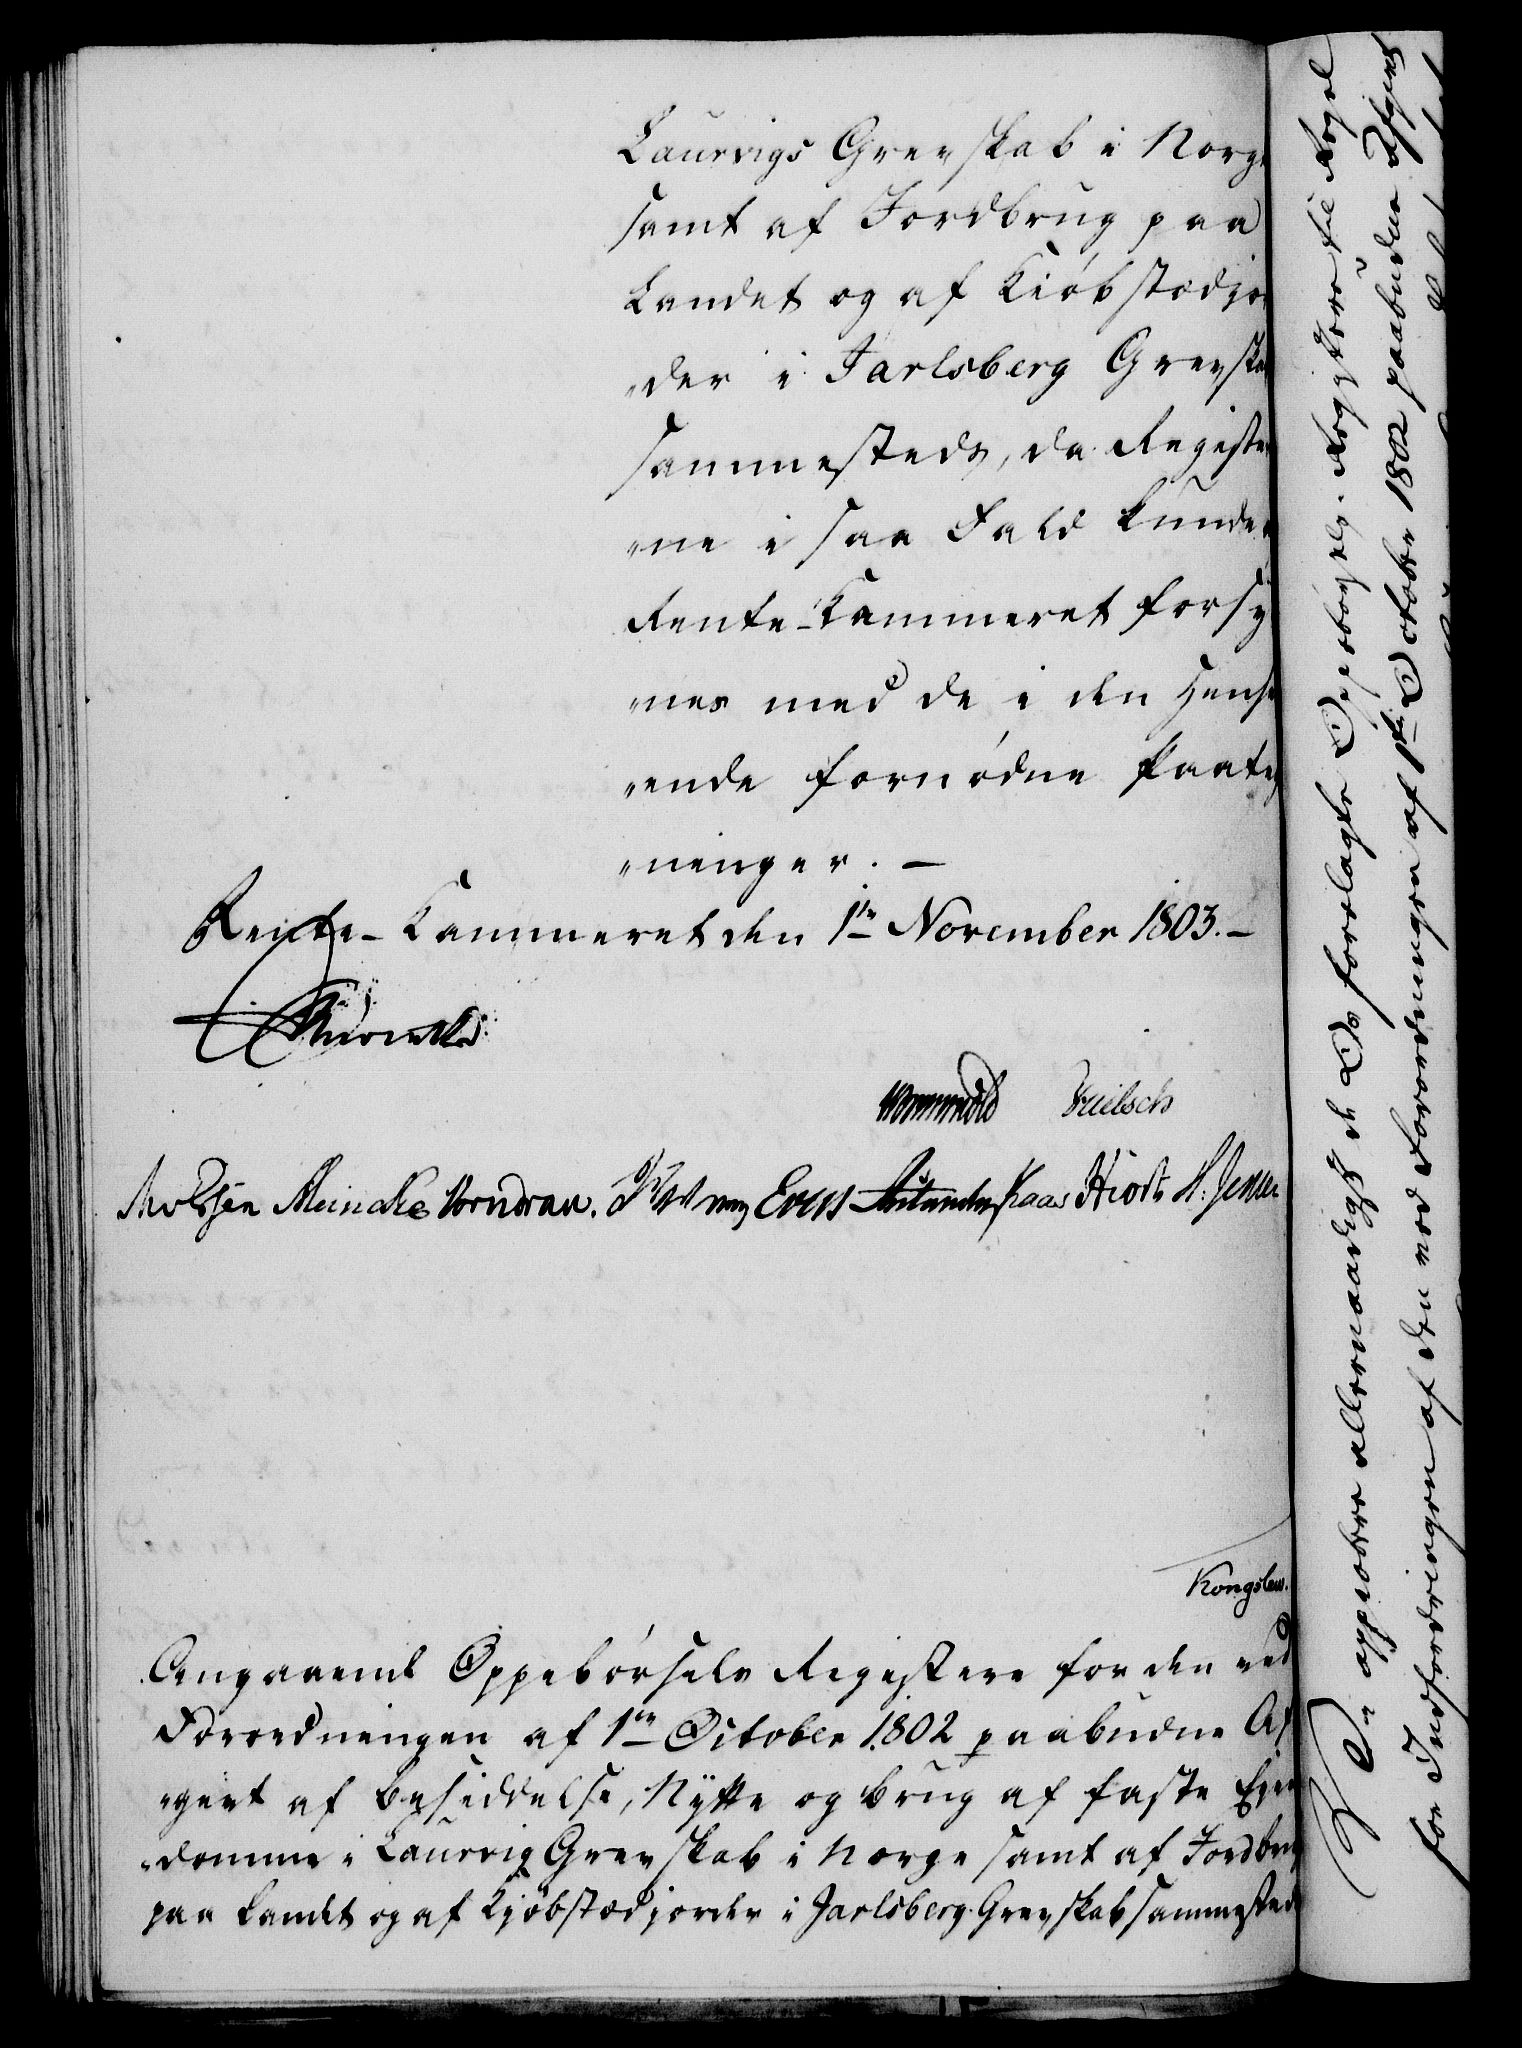 Laurvigs Grevskab i Norge
samt af Jordbrug paa
Landet og af Kiøbstædjor
„der i Jarlsberg Grevska
sammesteds, da Registe
„ne i saa Fald kunde
Rente-Kammeret forsy
„nes med de i den Hense
„ende fornødne Paateg
„ninger. —
Rente-Kammeret den 1te November 1803. —
Frietsch
Meincke Vorndran. Evers Kaas Hiort H. Jensen
Kongslew.
Angaaende Oppebørsels Registere for den ved
Forordningen af 1te October 1802 paabudne Af
„givt af Besiddelse, Nytte og Brug af faste Eien
„domme i Laurvig Grevskab i Norge samt af Jordbrug
paa Landet og af Kjøbstædjorder i Jarlsberg Grevskab sammesteds
Vi approbere allernaadigst de Os forelagte Oppebørsels-Registere til Regel
for Indfordringen af den ved Forordningen af 1ste October 1802 paabudne Afgivt